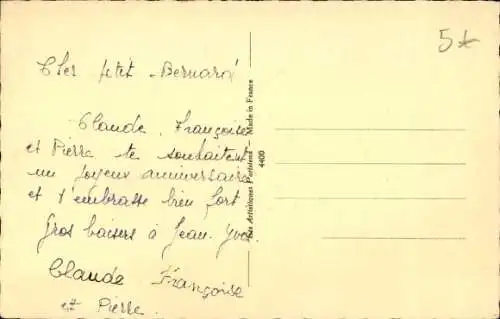 Cher petit Bernard
Claude, Françoise
et Pierre te souhaitent
un joyeux anniversaire
et t'embrasse bien fort
Gros baisers à Jean. Yves.
Claude Françoise
et Pierre.
Made in France
4400
5